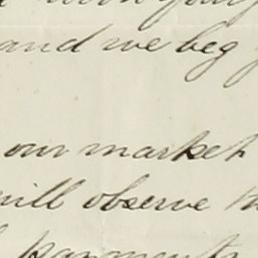 and we beg
our market
will observe
payments